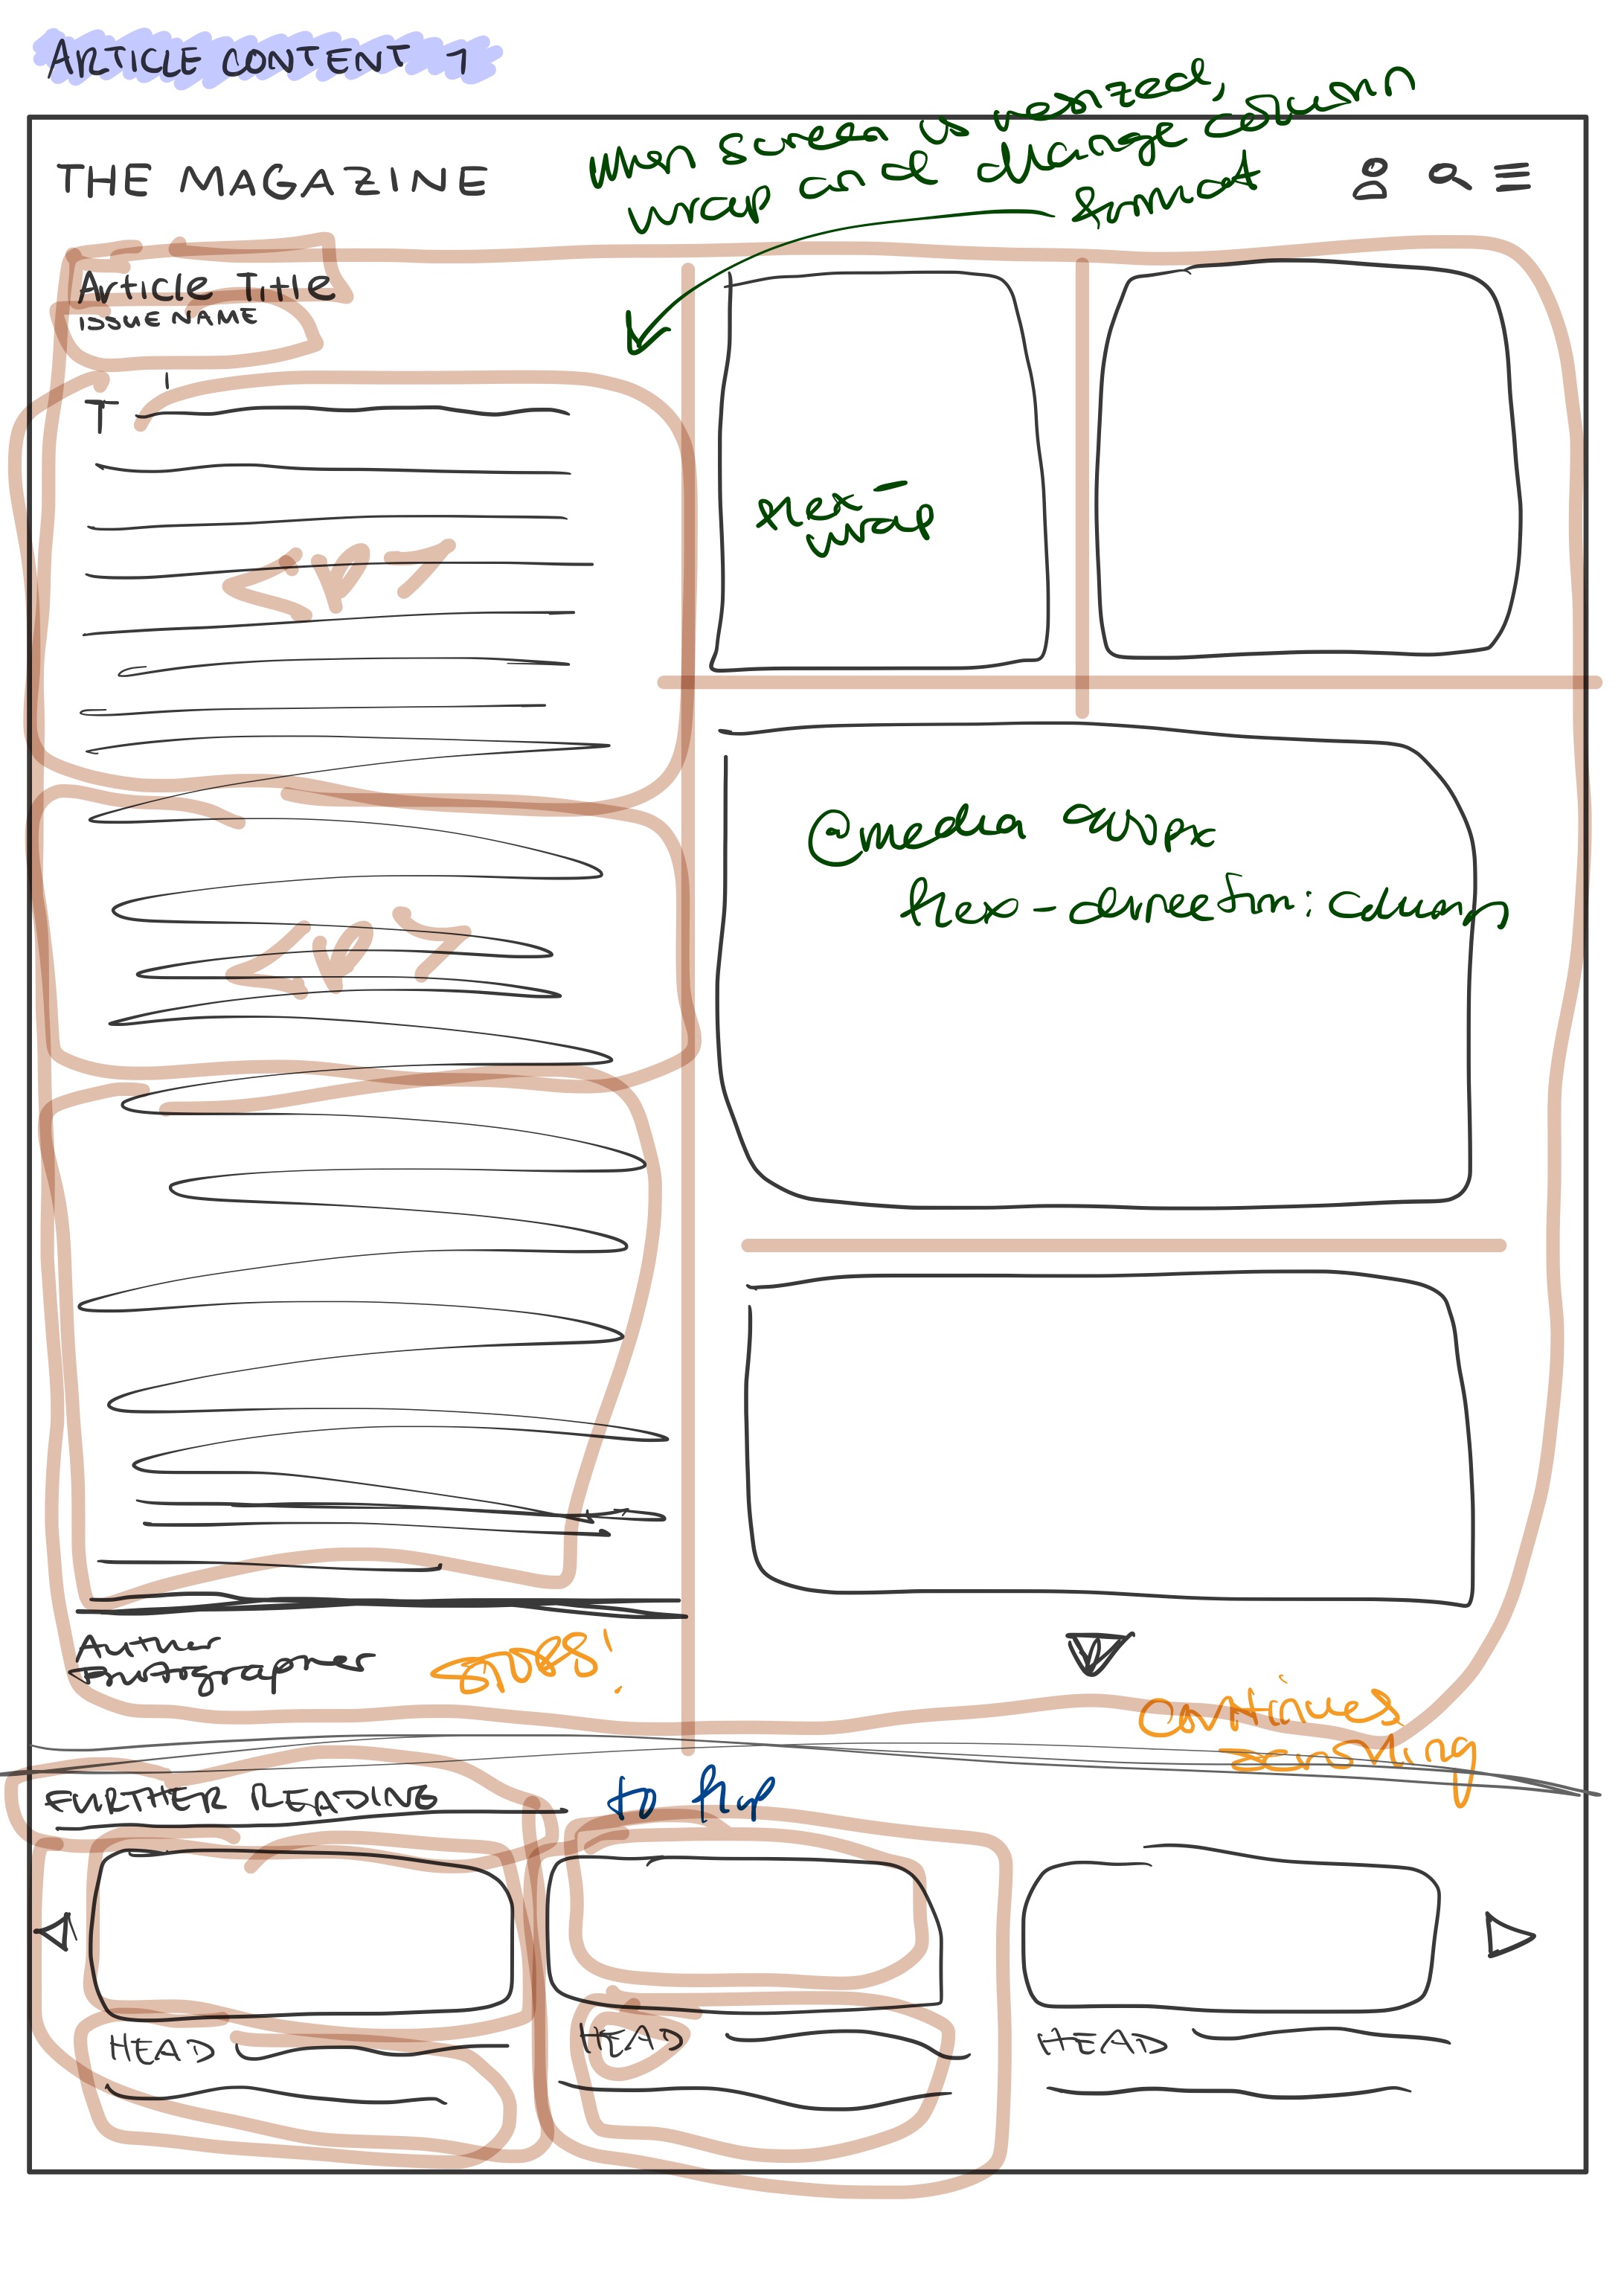 ARTICLE CONTENT 1
when screen is resized,
wrap and change column
format
THE MAGAZINE
Article Title
ISSUE NAME
T
flex-
wrap
<p>
@media
flex-direction: column
<p>
Author
Photographer
STOPS!
continues
scrolling
FURTHER READING
to flip
HEAD
HEAD
HEAD